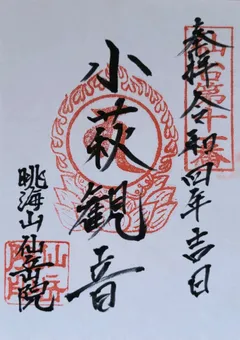 奉拝 令和四年吉日
小萩観音
眺海山仙岳院